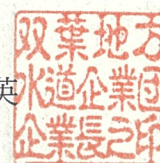 英
双葉地方
水道企業団
企業長之印